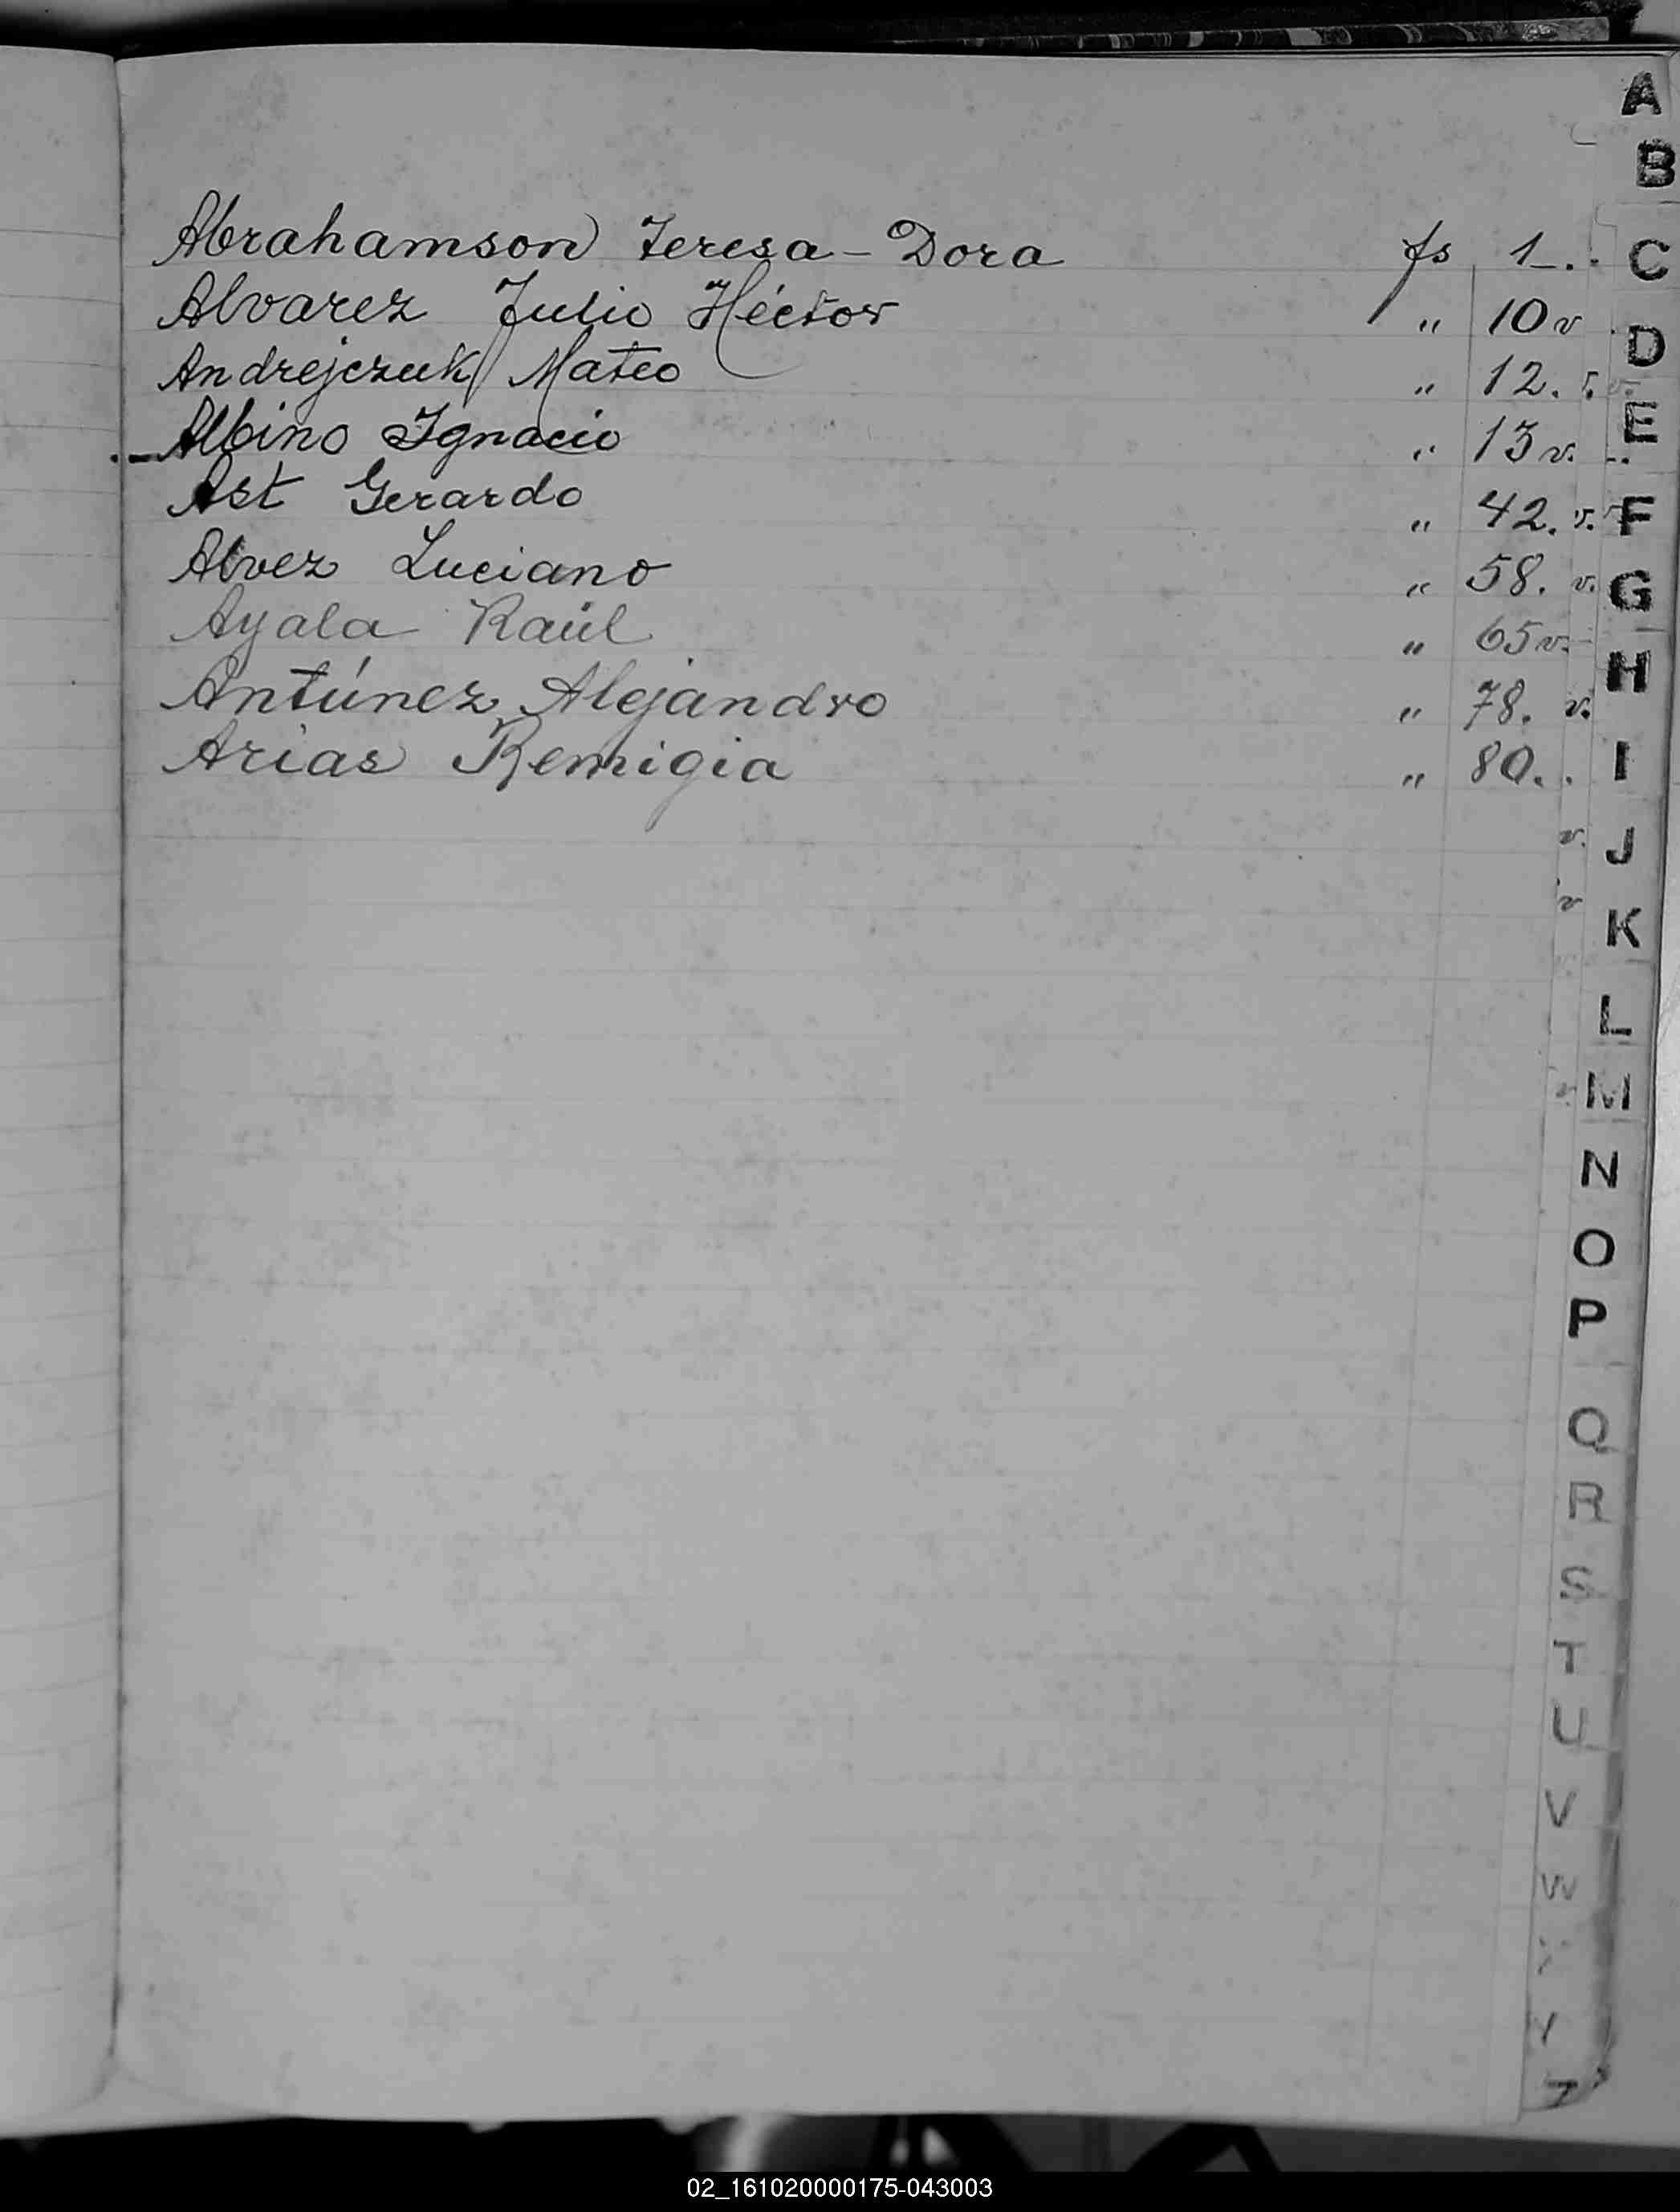 Abrahamson Teresa-Dora fs 1_.
Alvarez Julio Héctor " 10v
Andrejczuk Mateo " 12.
Albino Ignacio " 13v.
Ast Gerardo " 42.
Alvez Luciano " 58.
Ayala Raúl " 65v.
Antúnez Alejandro " 78.
Arias Remigia " 80.
A
B
C
D
E
F
G
H
I
J
K
L
M
N
O
P
Q
R
S
T
U
V
W
Y
Z
02_161020000175-043003